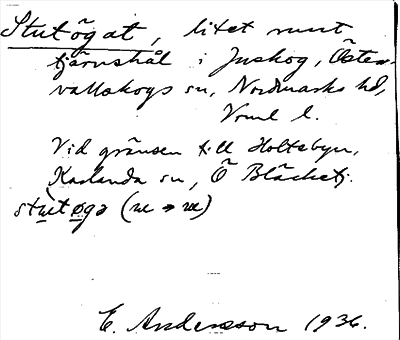 Stutögat, litet runt
tjärnshål i Juskog, Öster-
vallskogs sn, Nordmarks hd,
Vrml l.
Vid gränsen till Holtebyn,
Karlanda sn, Ö Bläcketj.
stutøga
E. Andersson 1936.